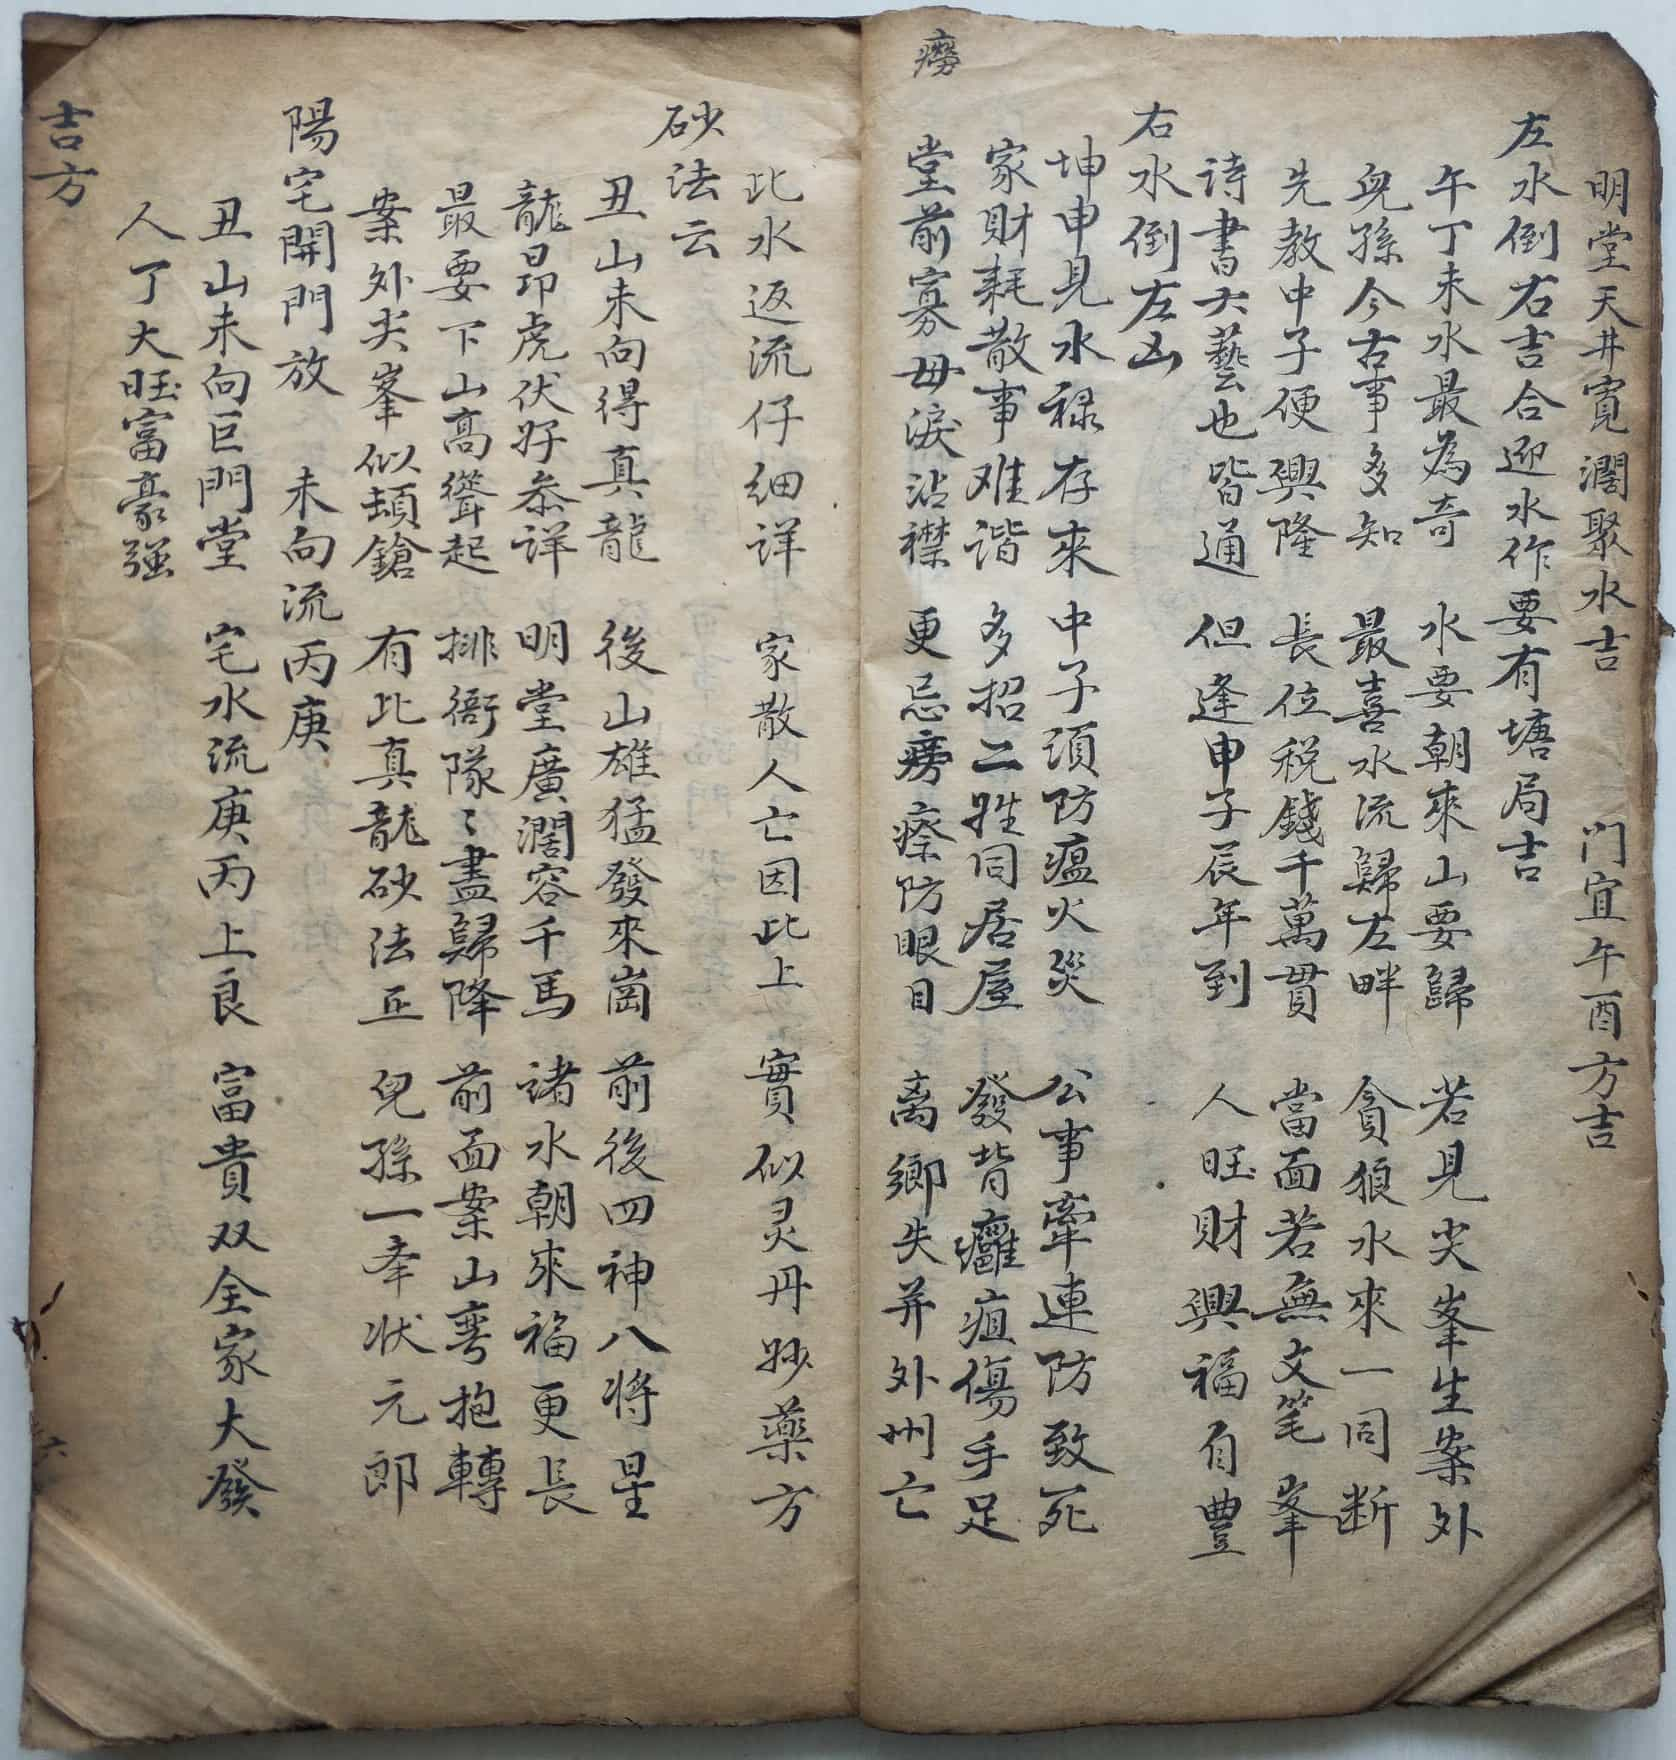 明堂天井寬濶聚水吉 门宜午酉方吉
左水倒右吉合迎水作要有塘局吉
午丁未水最為奇 水要朝來山要歸 若見尖峯生案外
兒孫今古事多知 最喜水流歸左畔 貪狼水來一同断
先教中子便興隆 長位税錢千萬貫 當面若無文筆峯
詩書六藝也皆通 但逢申子辰年到 人旺財興福自豊
右水倒左凶
坤申見水禄存來 中子須防瘟火災 公事牽連防致死
家財耗散事难谐 多招二姓同居屋 發背癰疽傷手足
癆
堂前寡母淚沾襟 更忌痨瘵防眼目 离鄉失井外州亡
比水返流仔细详 家散人亡因比上 實似灵丹妙藥方
砂法云
丑山未向得真龍 後山雄猛發來崗 前後四神八将星
龍昂虎伏好叅详 明堂廣濶容千馬 诸水朝來福更長
最要下山高聳起 排衙隊〻盡歸降 前面案山弯抱轉
案外尖峯似頓鎗 有比真龍砂法正 兒孫一牵状元郎
陽宅開門放 未向流丙庚
丑山未向巨門堂 宅水流庚丙上良 富貴双全家大發
人丁大旺富豪强
吉方
六